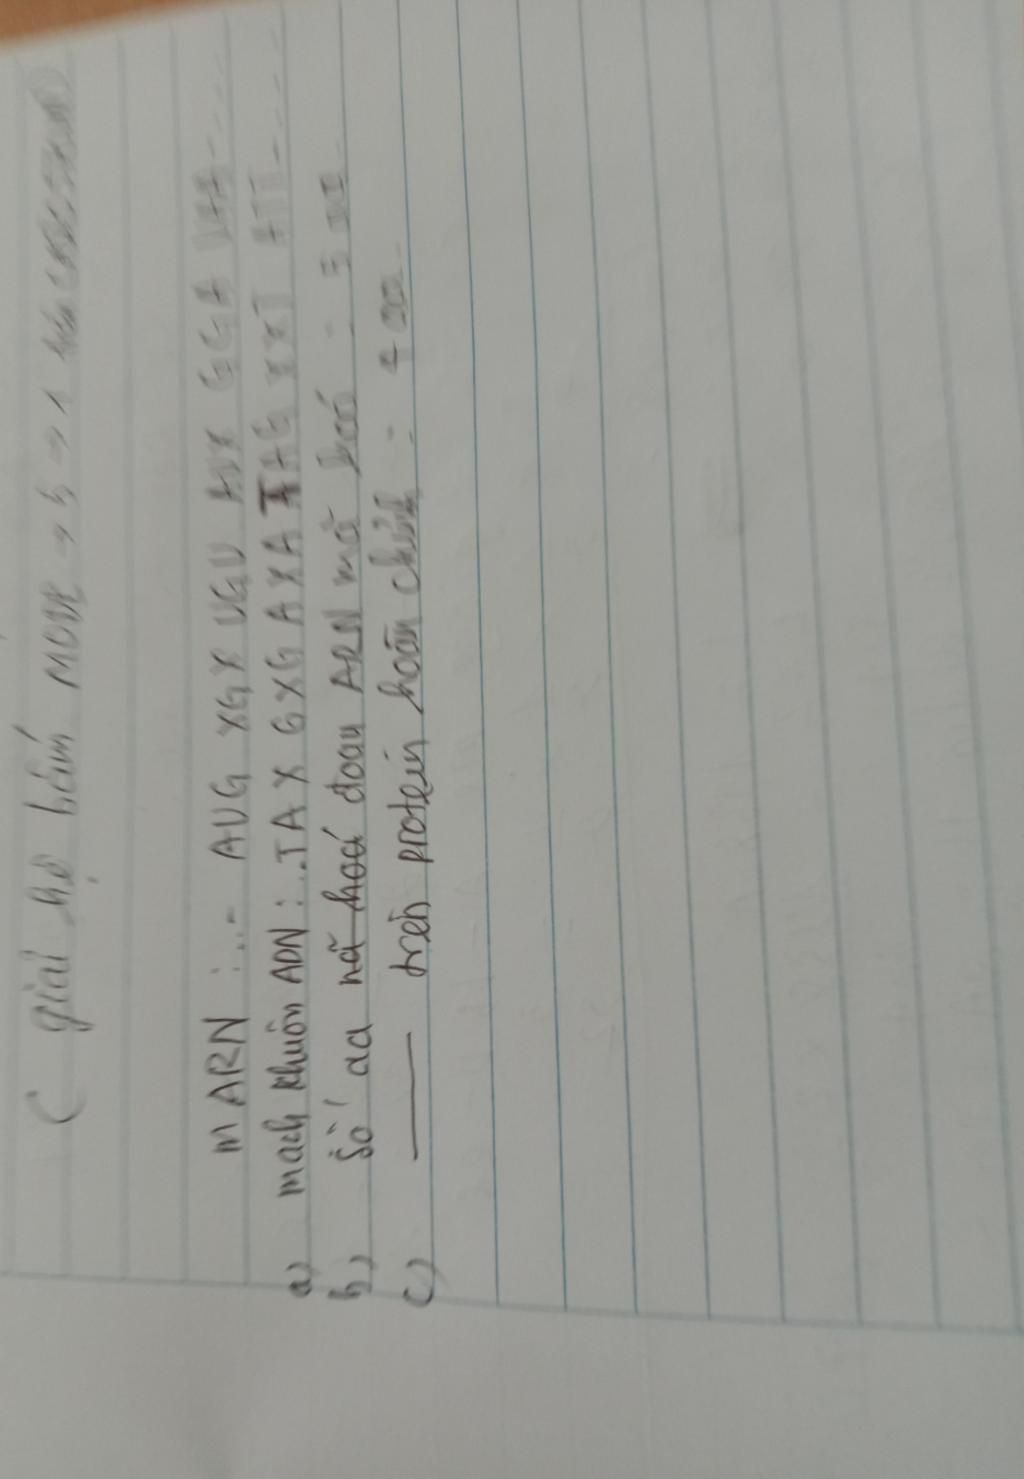 ( giải hệ bấm MODE → 5 → 1
mARN : ... - AUG XGX UGU AUX GGA UAA - ...
a) mạch khuôn ADN : .. TAX GXG AXA TAG XXT ATT - ...
b) Số aa mã hoá đoạn ARN mã hoá : 5 aa
c) —— trên protein hoàn chỉnh : 4 aa.